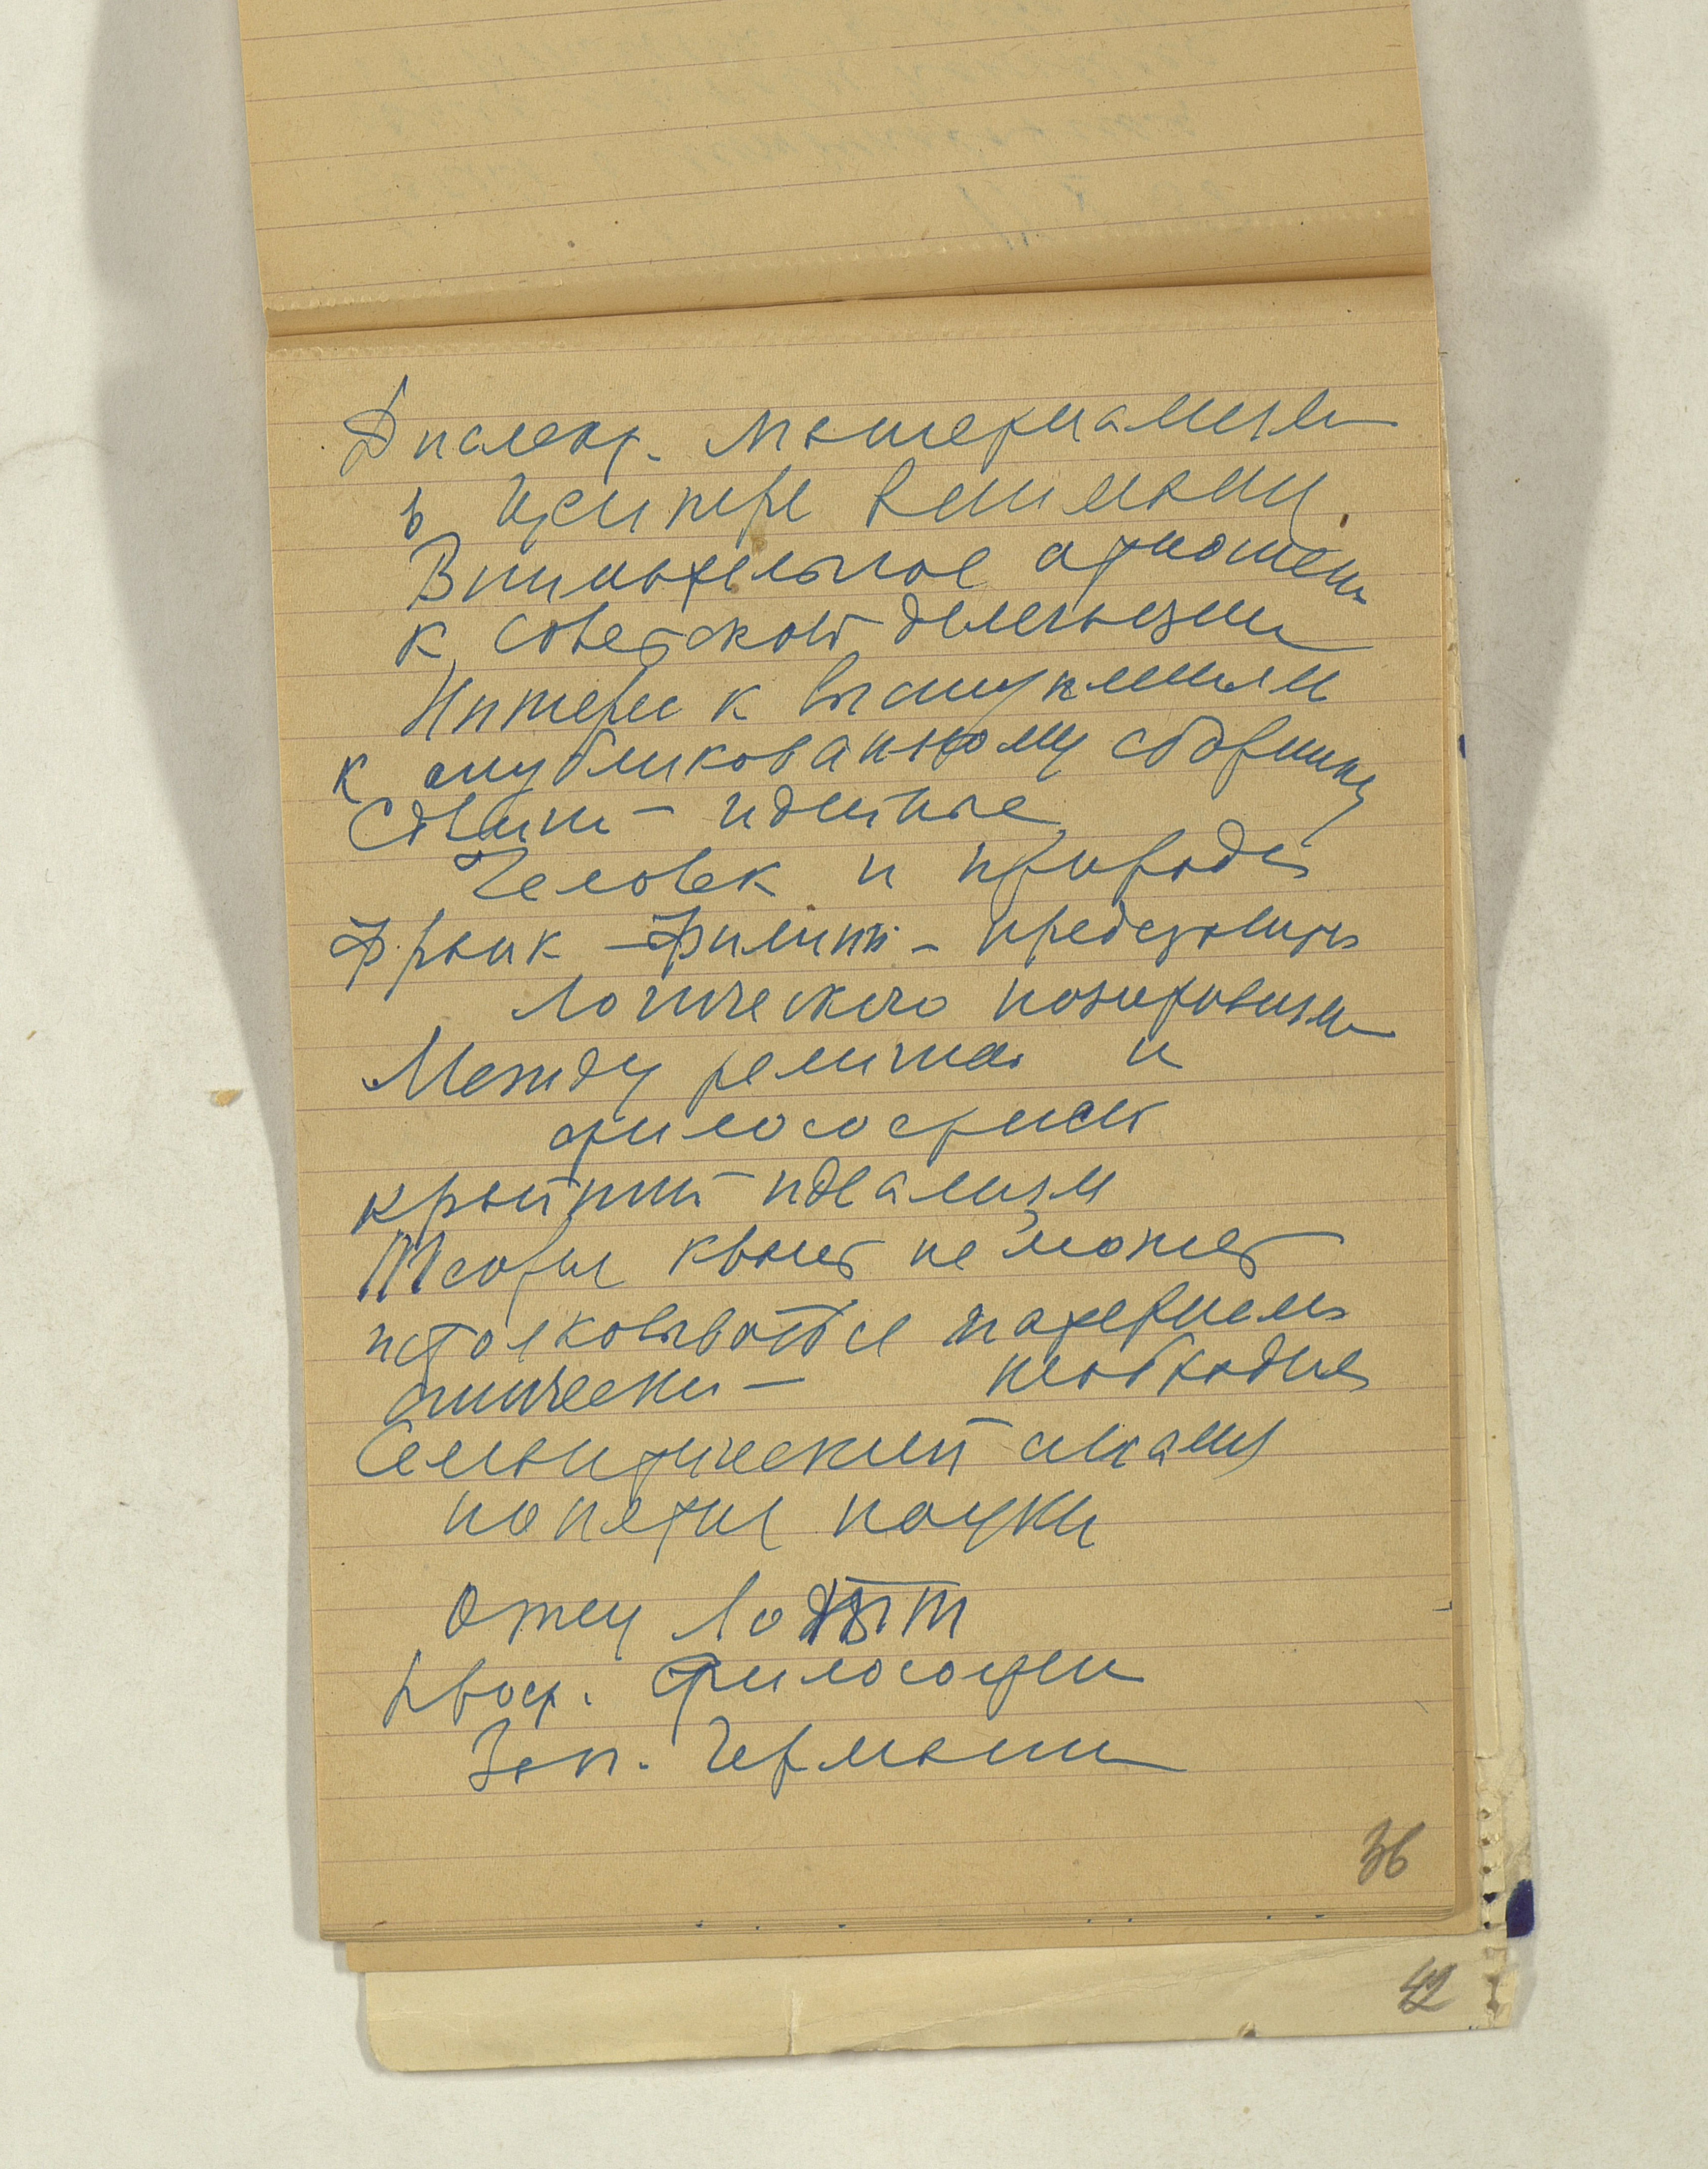 Диалект. материализм
в центре внимани
Внимательное отношен
к советской делегации
Интерес к выступлениям
к опубликованному сборнику
идейные
Человек и природа
Франк – Филипп – председатель
логического позитивизма
Между религией и
философией
крайний идеализм
Теория квант не может
истолковываться материали
стически – необходим
Семантический анализ
понятия науки
Отец
проф. философии
Зап. Германии
36
42